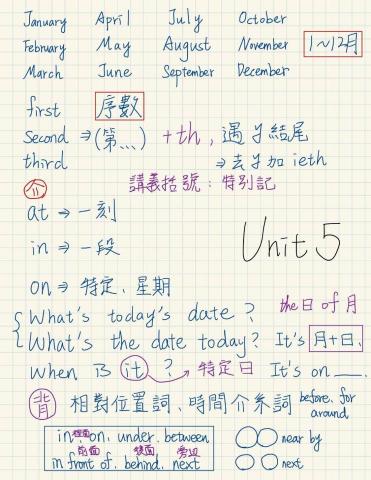 January April July October
February May August November 1~12月
March June September December
first 序數
second ⇒ (第...) +th, 遇y結尾
third ⇒ 去y加ieth
講義括號: 特別記
介
at ⇒ 一刻
in ⇒ 一段
Unit 5
on ⇒ 特定、星期
What's today's date? the 日 of 月
What's the date today? It's 月+日.
When is it? 特定日 It's on ___.
背 相對位置詞、時間介系詞 before. for
around
in 裡面 on. under. between near by
前面 後面 旁边
in front of. behind. next next